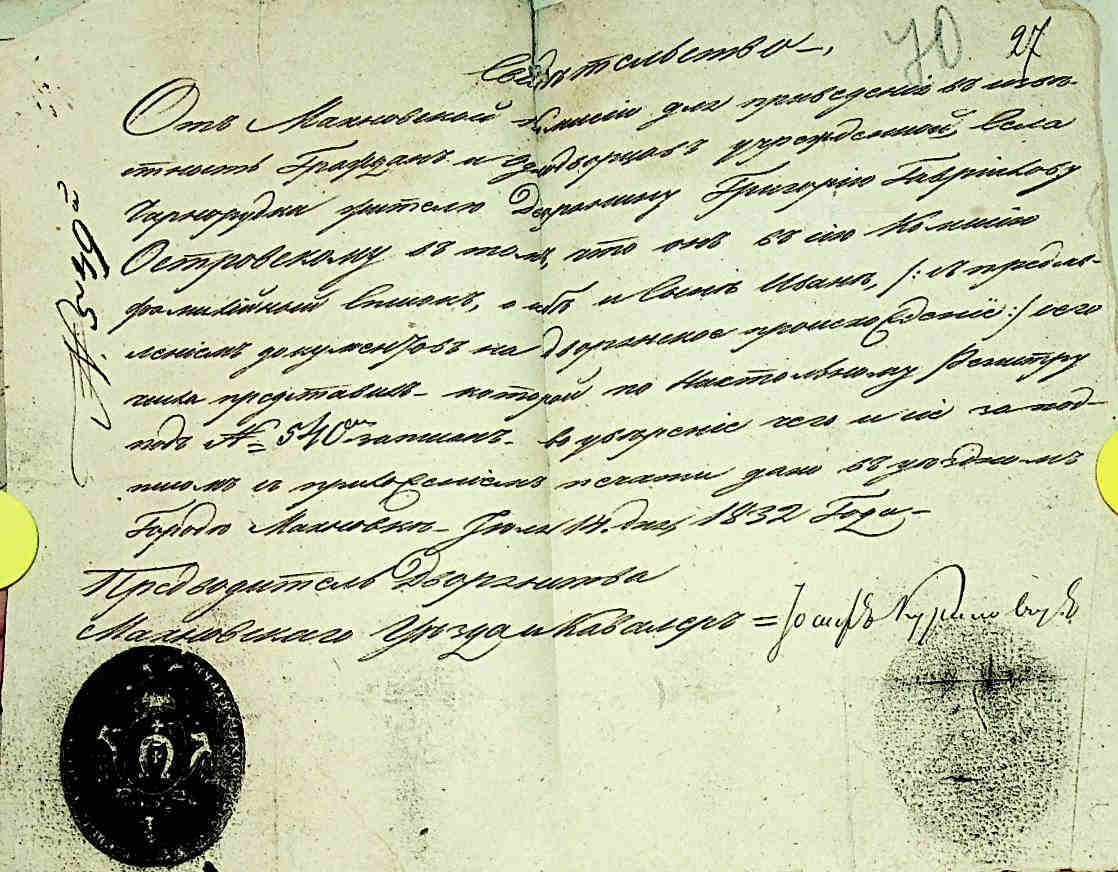 70 27
Свидѣтельство
Отъ Махновской Комисіи для приведенія въ извѣ-
стность Гражданъ и Однодворцовъ учрежденной, Села
Чарнорудки жителю Дворянину Григорію Гаврилкову
Островскому въ томъ, что онъ въ сію Комисію
фамилійный Списокъ, о себѣ и Сынѣ Иванѣ, /: съ предъяв-
леніемъ документовъ на дворянское происхожденіе :/ сего
числа представилъ, которой по Настольному Регистру
подъ № 540ым записанъ. Во увѣреніе чего и сіе за под-
писомъ и приложеніемъ печати дано въ уѣздномъ
Городѣ Махновкѣ. Іюля 14. дня, 1832 Года
Предводитель Дворянства
Махновскаго Уѣзда и Кавалеръ = Іосифъ
№ 539й